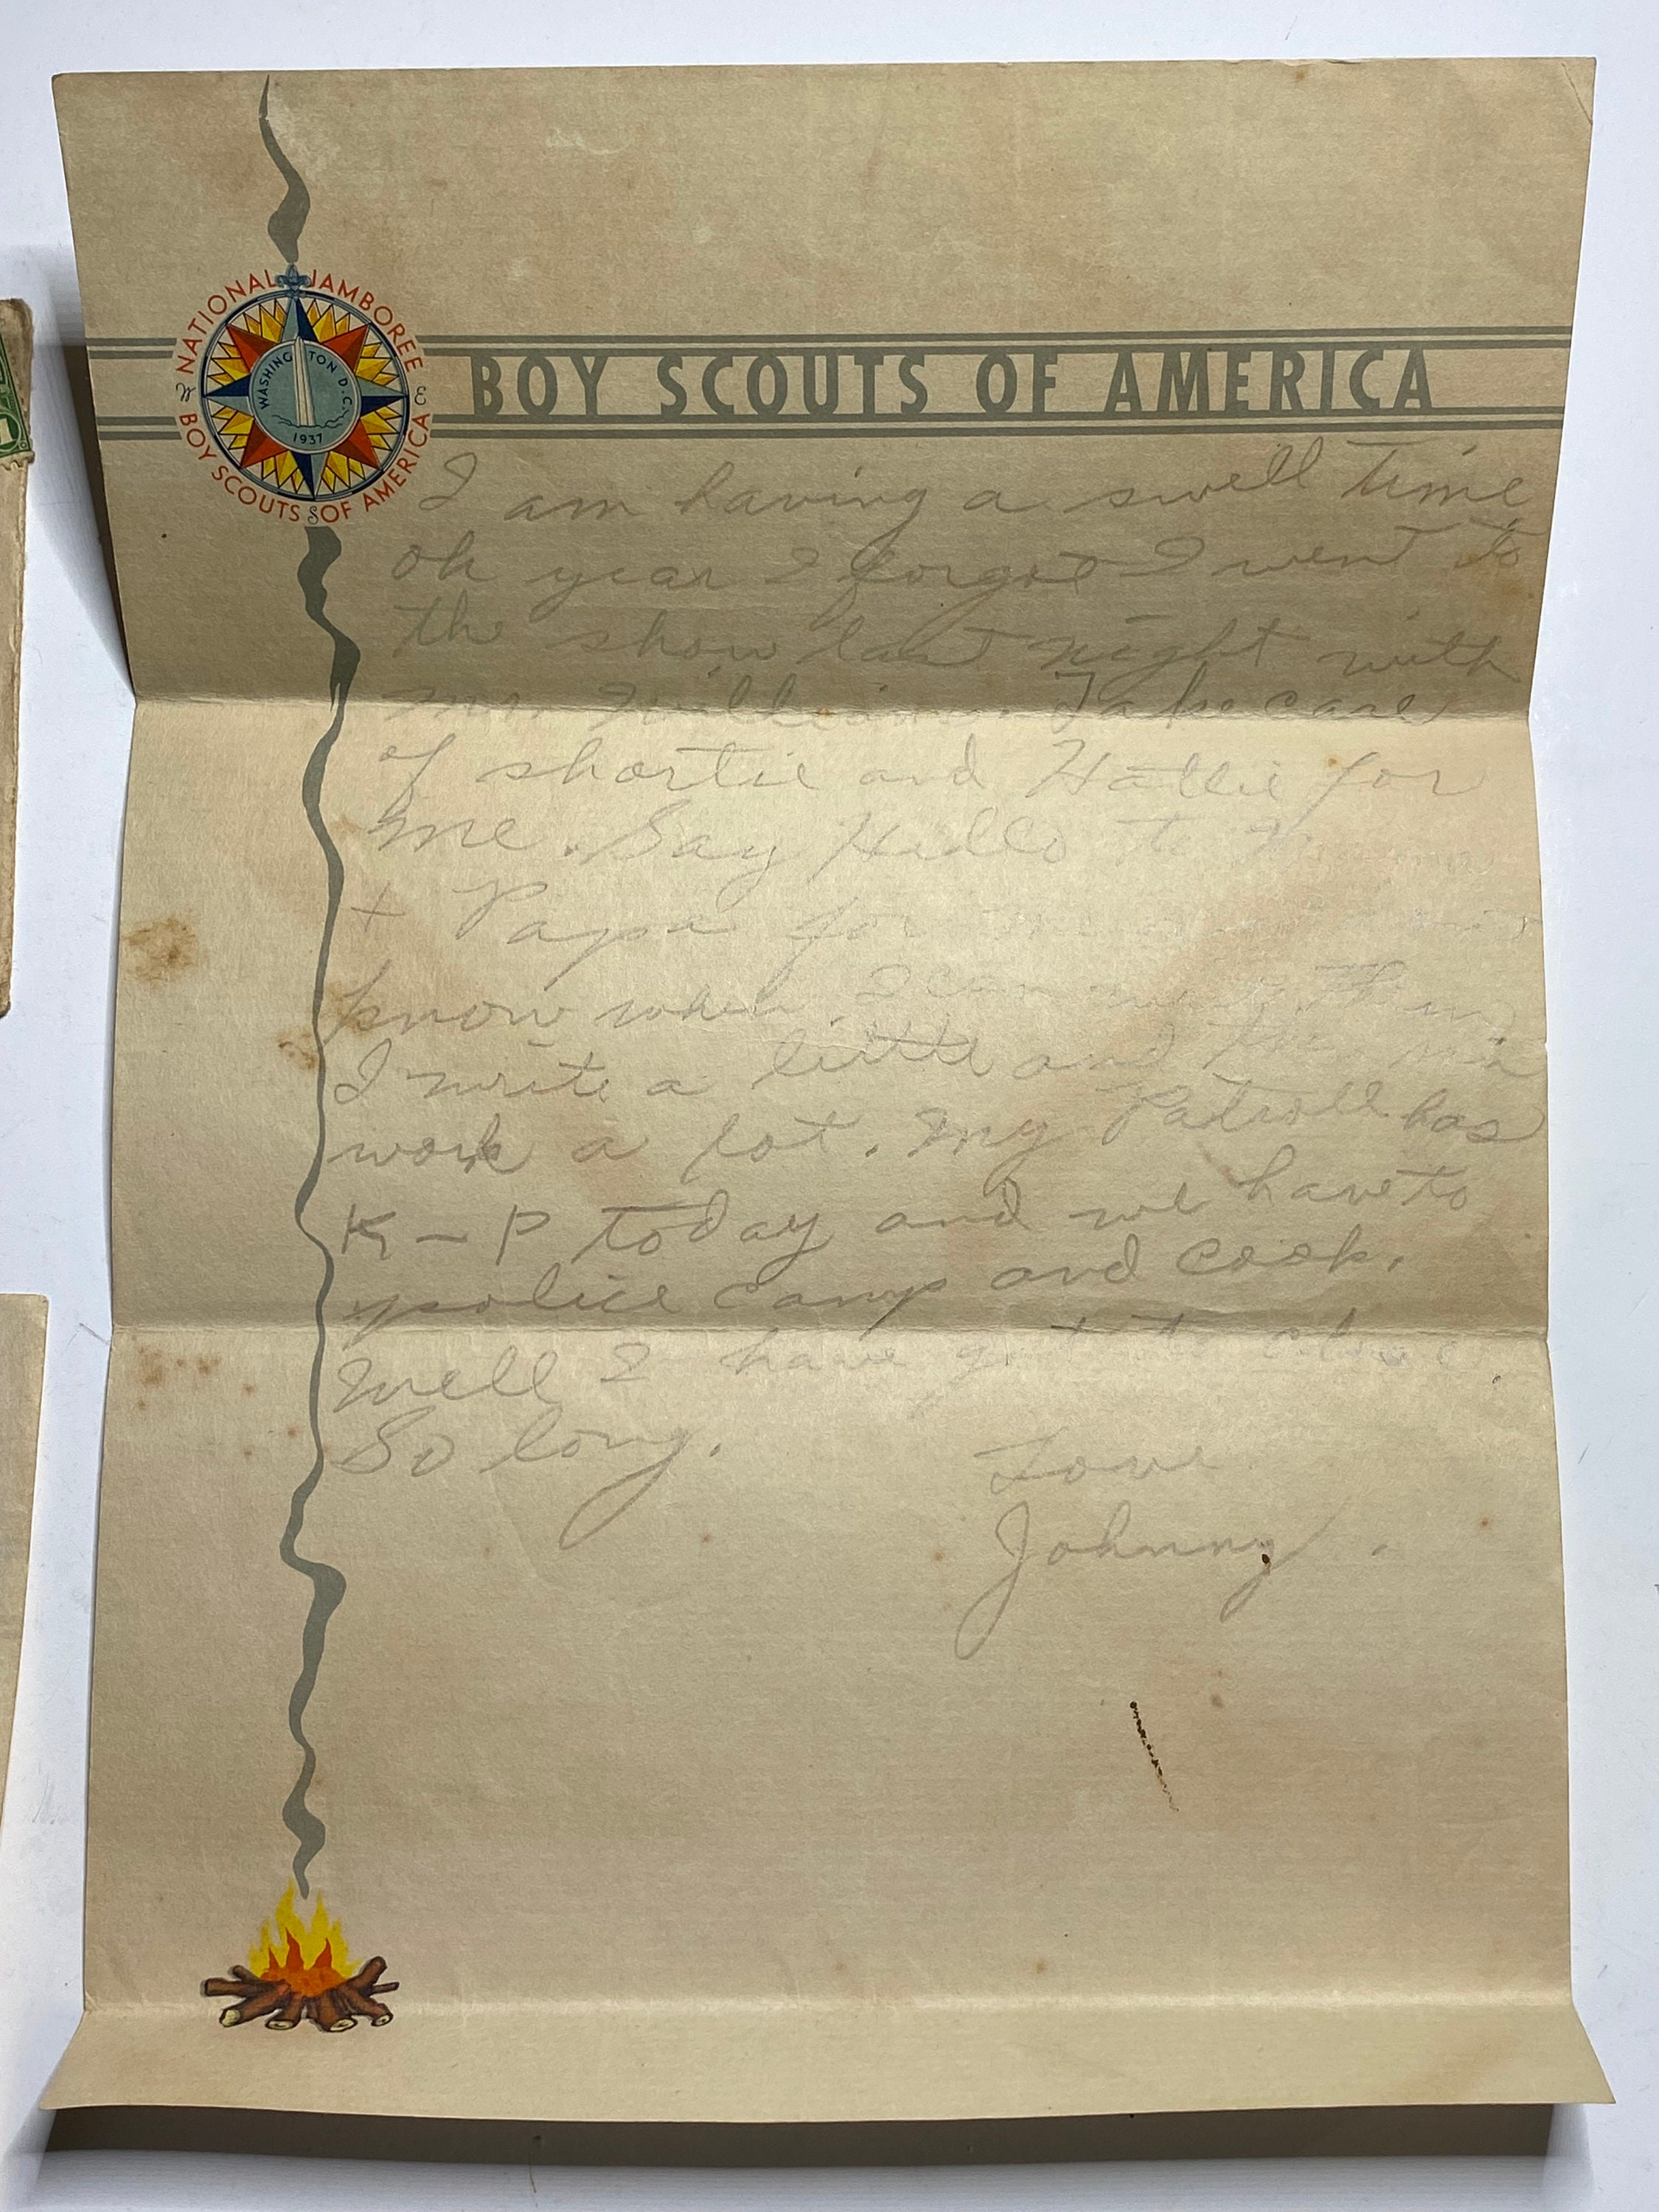 NATIONAL JAMBOREE
W E
WASHINGTON D.C.
1937
BOY SCOUTS OF AMERICA
S
BOY SCOUTS OF AMERICA
I am having a swell time
oh year I forgot I went to
the show last night with
Take care
of shortie and Hattie for
me. Say Hello to
+ Papa for
know when I can write them
I write a little and then
work a lot. My Patroll has
K-P today and we have to
police camp and cook.
Well I have got to close
So long.
Love
Johnny.